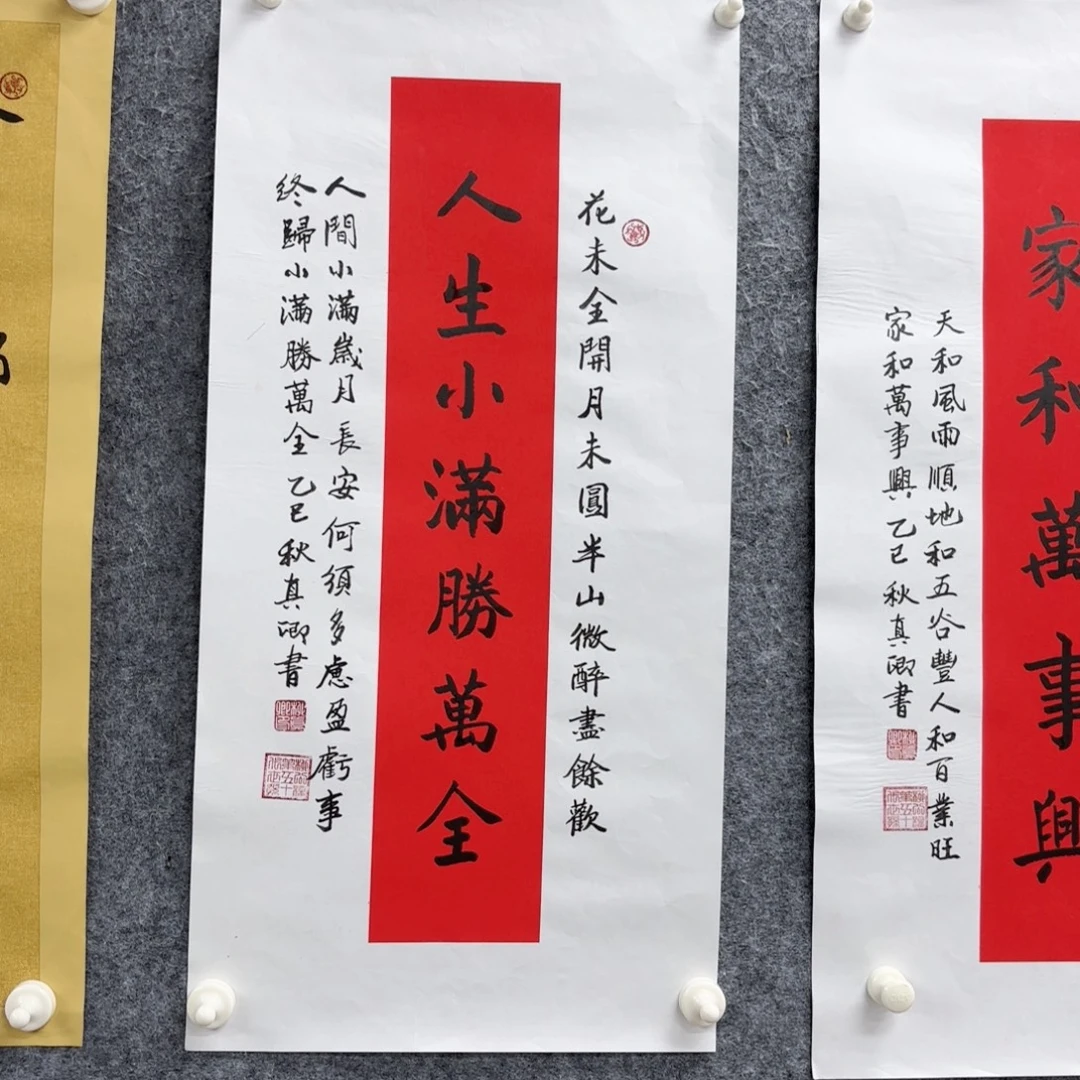 花未全開月未圓半山微醉盡餘歡
人生小滿勝萬全
人間小滿歲月長安何須多慮盈虧事
終歸小滿勝萬全乙巳秋真卿書
家和萬事興
天和風雨順地和五谷豐人和百業旺
家和萬事興乙巳秋真卿書